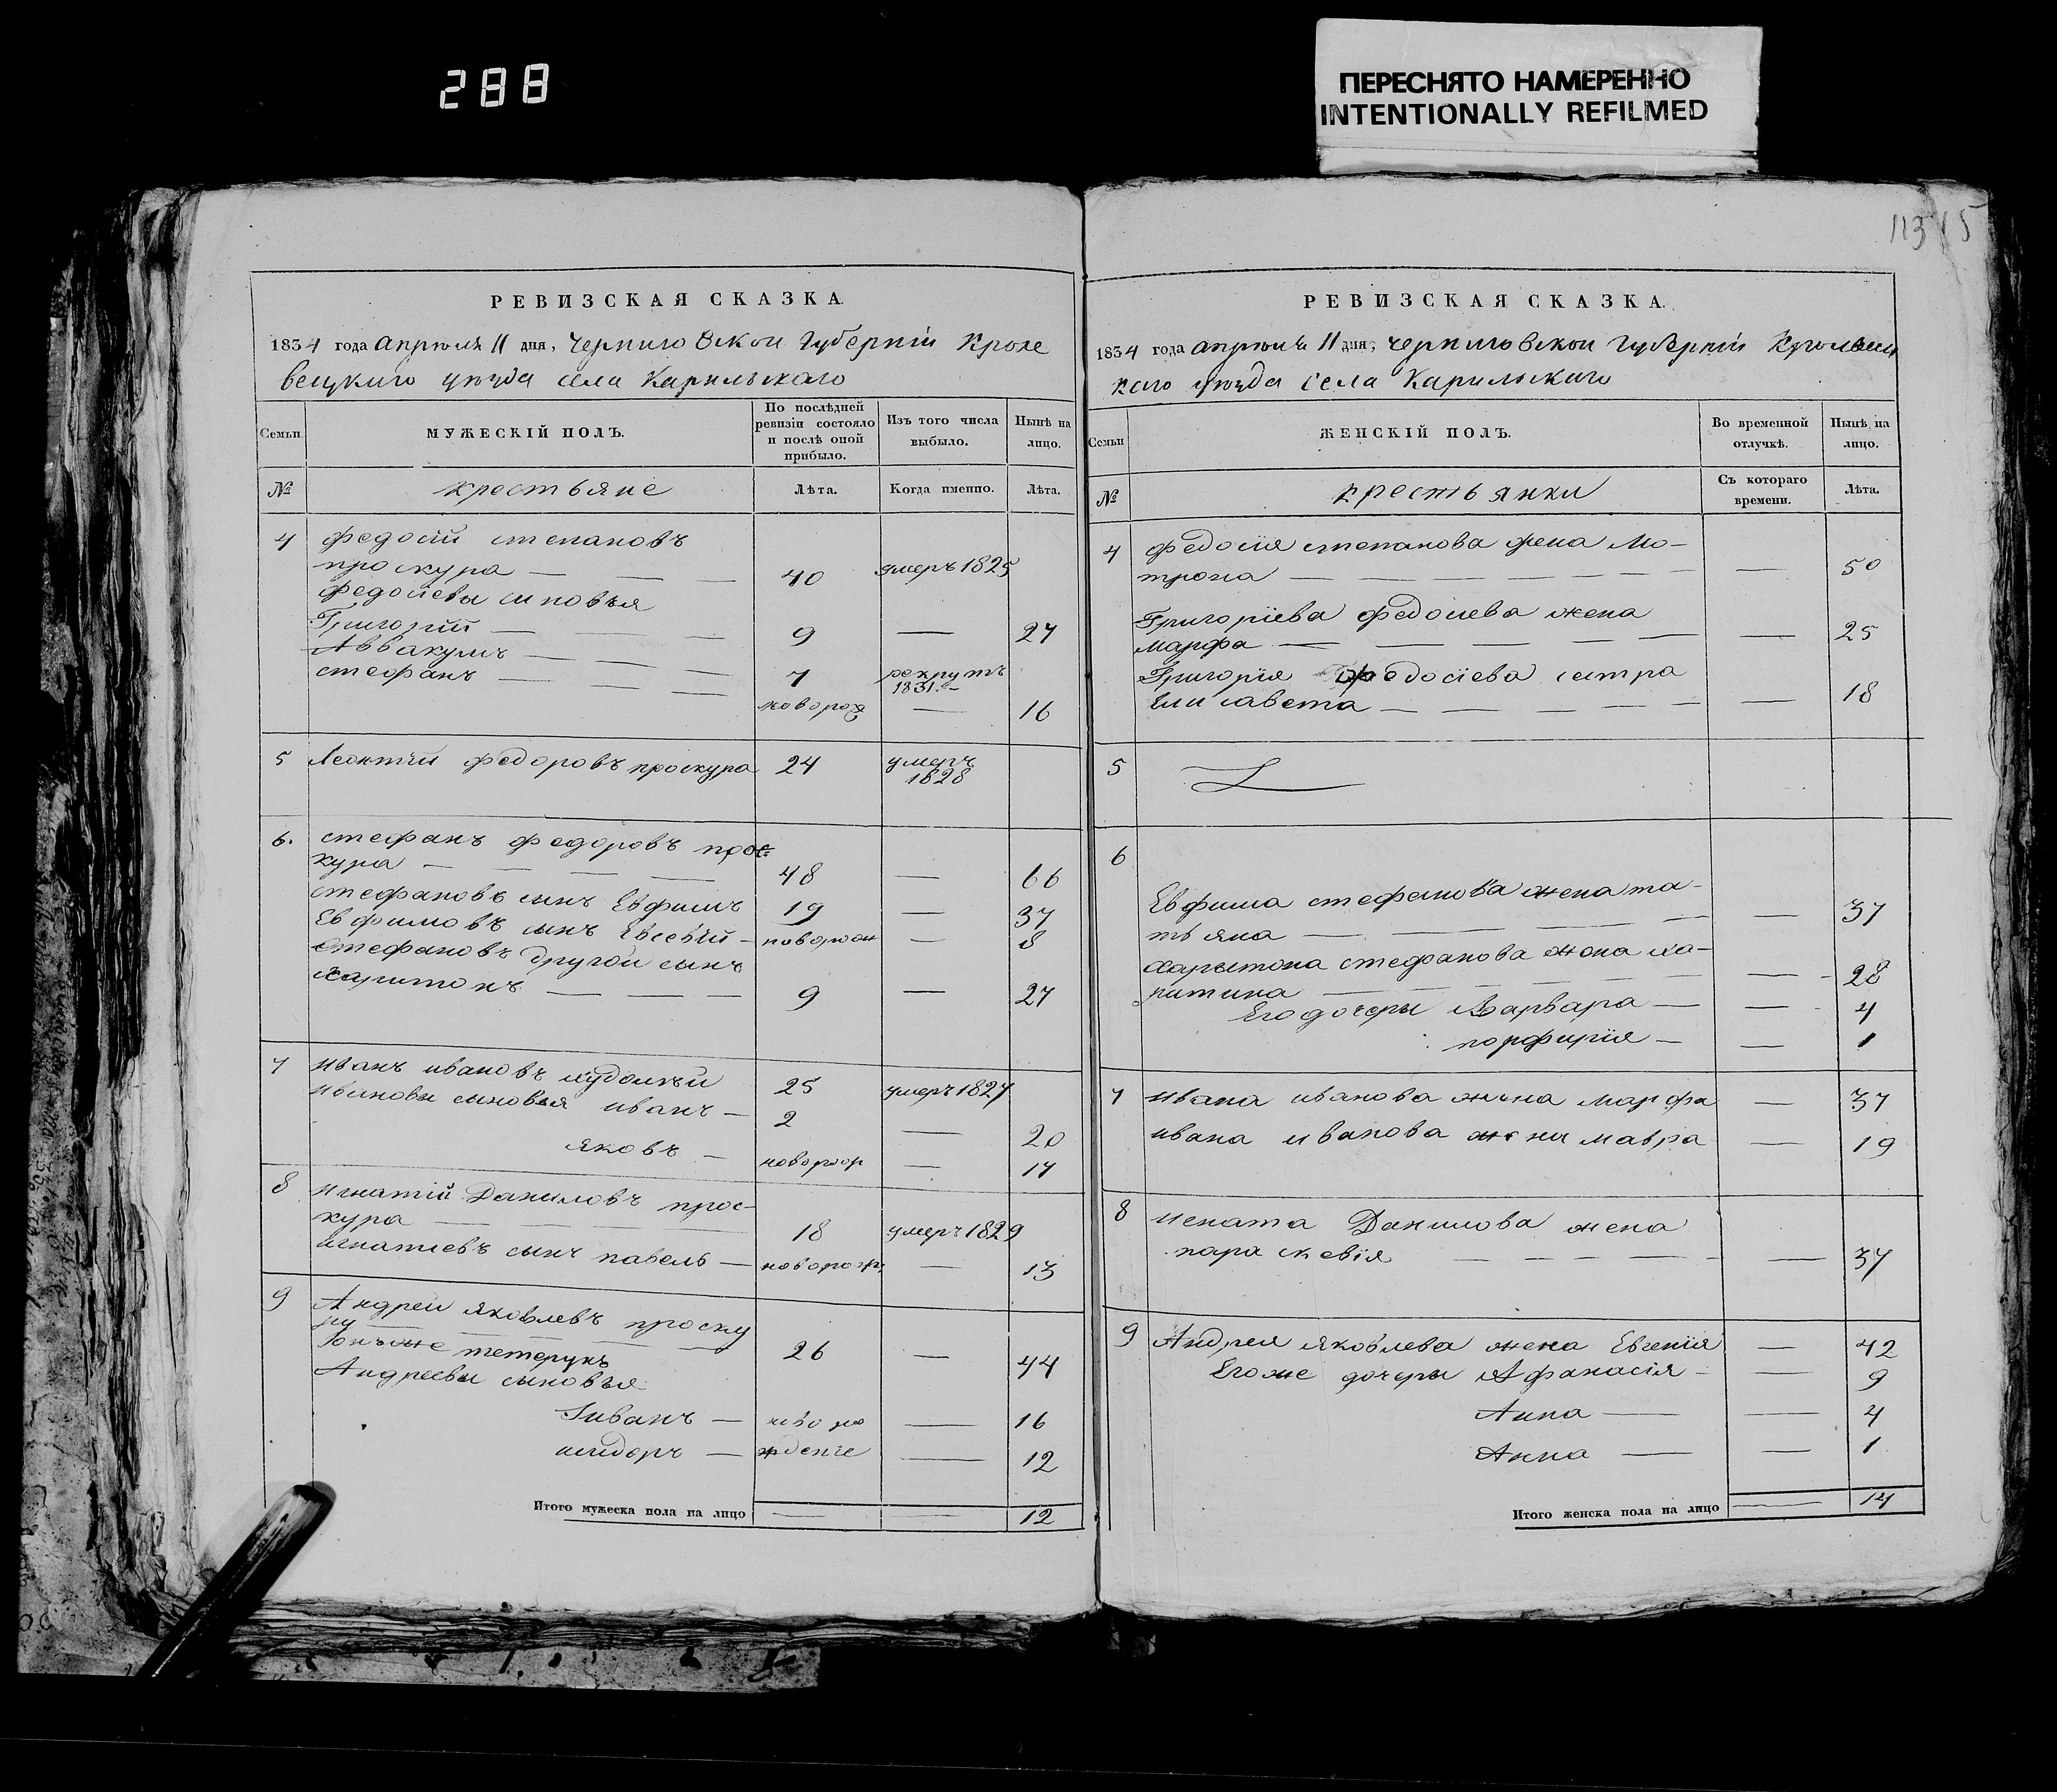 288
ПЕРЕСНЯТО НАМЕРЕННО
INTENTIONALLY REFILMED
РЕВИЗСКАЯ СКАЗКА.
1834 года апреля 11 дня, Черниговской Губерніи Кроле
вецкаго уезда села Карильскаго
Семьи
МУЖЕСКІЙ ПОЛЪ.
По послѣдней ревизіи состояло и послѣ оной прибыло.
Изъ того числа выбыло.
Нынѣ на лицо.
№
крестьяне
Лѣта.
Когда именно.
Лѣта.
4 федосій степановъ
проскура — 40 умеръ 1825
федосіевы сыновья
Григорій — 9 — 27
Аввакумъ — 7 рекрутъ 1831
стефанъ — новорож — 16
5 Леонтій федоровъ проскура 24 умеръ 1828
6. стефанъ федоровъ прос-
кура — 48 — 66
стефановъ сынъ Евфимъ 19 — 37
Евфимовъ сынъ Евсевій — новорож — 8
Стефановъ другой сынъ
Харитонъ — 9 — 27
7 иванъ ивановъ 25 умеръ 1827
ивановы сыновья иванъ — 2 — 20
яковъ — новорож — 14
8 игнатій Даниловъ прос-
кура — 18 умеръ 1829
игнатіевъ сынъ павелъ — новорож — 13
9 Андрей яковлевъ проску
ра
онъ же тетерукъ 26 — 44
Андреевы сыновья
Иванъ — ново ро — 16
сидоръ — жденіе — 12
Итого мужеска пола на лицо — — 12
113 15
РЕВИЗСКАЯ СКАЗКА.
1834 года апреля 11 дня, Черниговской Губерніи Кролевец
каго уезда села Карильскаго
Семьи
ЖЕНСКІЙ ПОЛЪ.
Во временной отлучкѣ.
Нынѣ на лицо.
№
крестьянки
Съ котораго времени.
Лѣта.
4 федосія степанова жена Мо-
трона — — 50
Григоріева федосіева жена
марфа — — 25
Григорія федосіева сестра
Елисавета — — 18
5
6
Евфима стефанова жена та-
тьяна — — 37
Харытона стефанова жена ка-
питина — — 28
Его дочеры Варвара — — 4
порфирія — — 1
7 ивана иванова жена марфа — 37
ивана иванова жена мавра — 19
8 игната Данилова жена
параскевія — — 37
9 Андрея яковлева жена Евгенія — 42
Его же дочеры Афанасія — — 9
Анна — — 4
Анна — — 1
Итого женска пола на лицо — 14